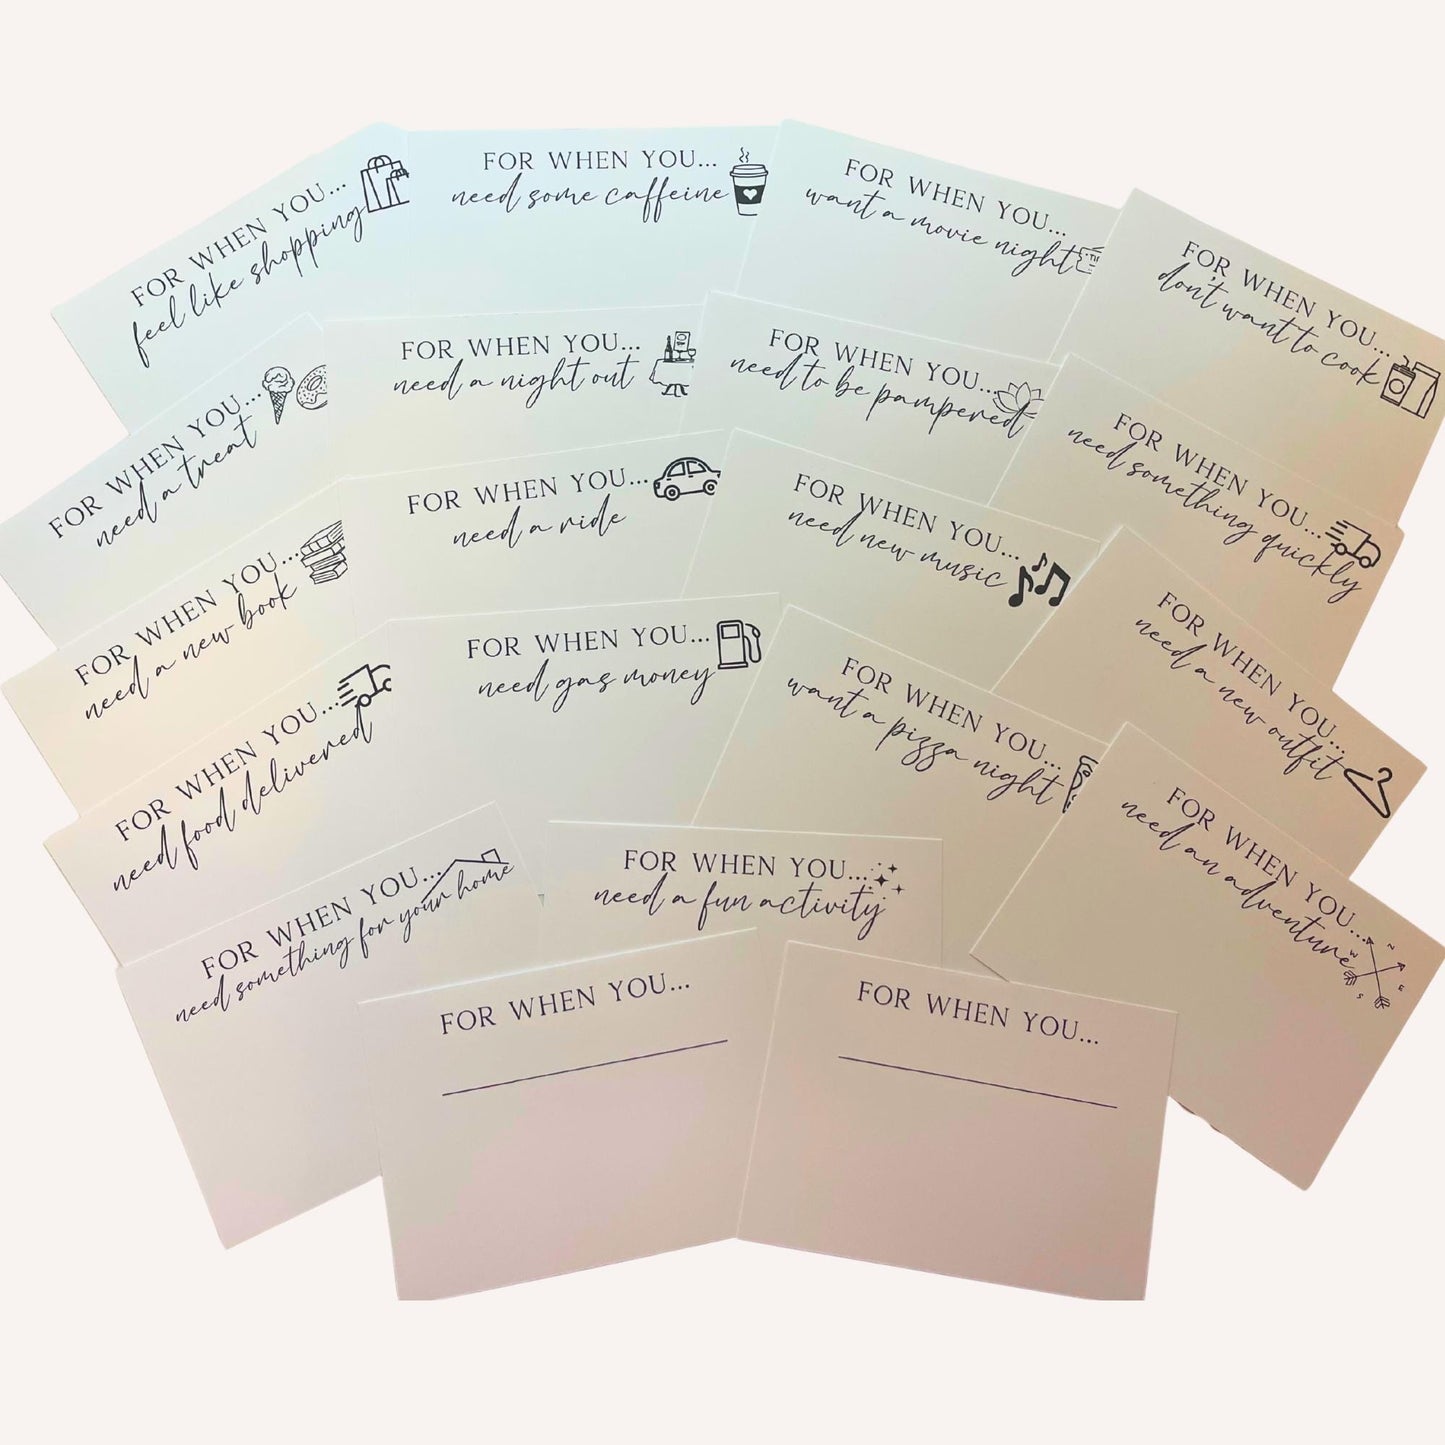 FOR WHEN YOU...
feel like shopping
FOR WHEN YOU...
need some caffeine
FOR WHEN YOU...
want a movie night
FOR WHEN YOU...
don't want to cook
FOR WHEN YOU...
need a treat
FOR WHEN YOU...
need a night out
FOR WHEN YOU...
need to be pampered
FOR WHEN YOU...
need something quickly
FOR WHEN YOU...
need a new book
FOR WHEN YOU...
need a ride
FOR WHEN YOU...
need new music
FOR WHEN YOU...
need a new outfit
FOR WHEN YOU...
need food delivered
FOR WHEN YOU...
need gas money
FOR WHEN YOU...
want a pizza night
FOR WHEN YOU...
need an adventure
N
W
E
S
FOR WHEN YOU...
need something for your home
FOR WHEN YOU...
need a fun activity
FOR WHEN YOU...
FOR WHEN YOU...